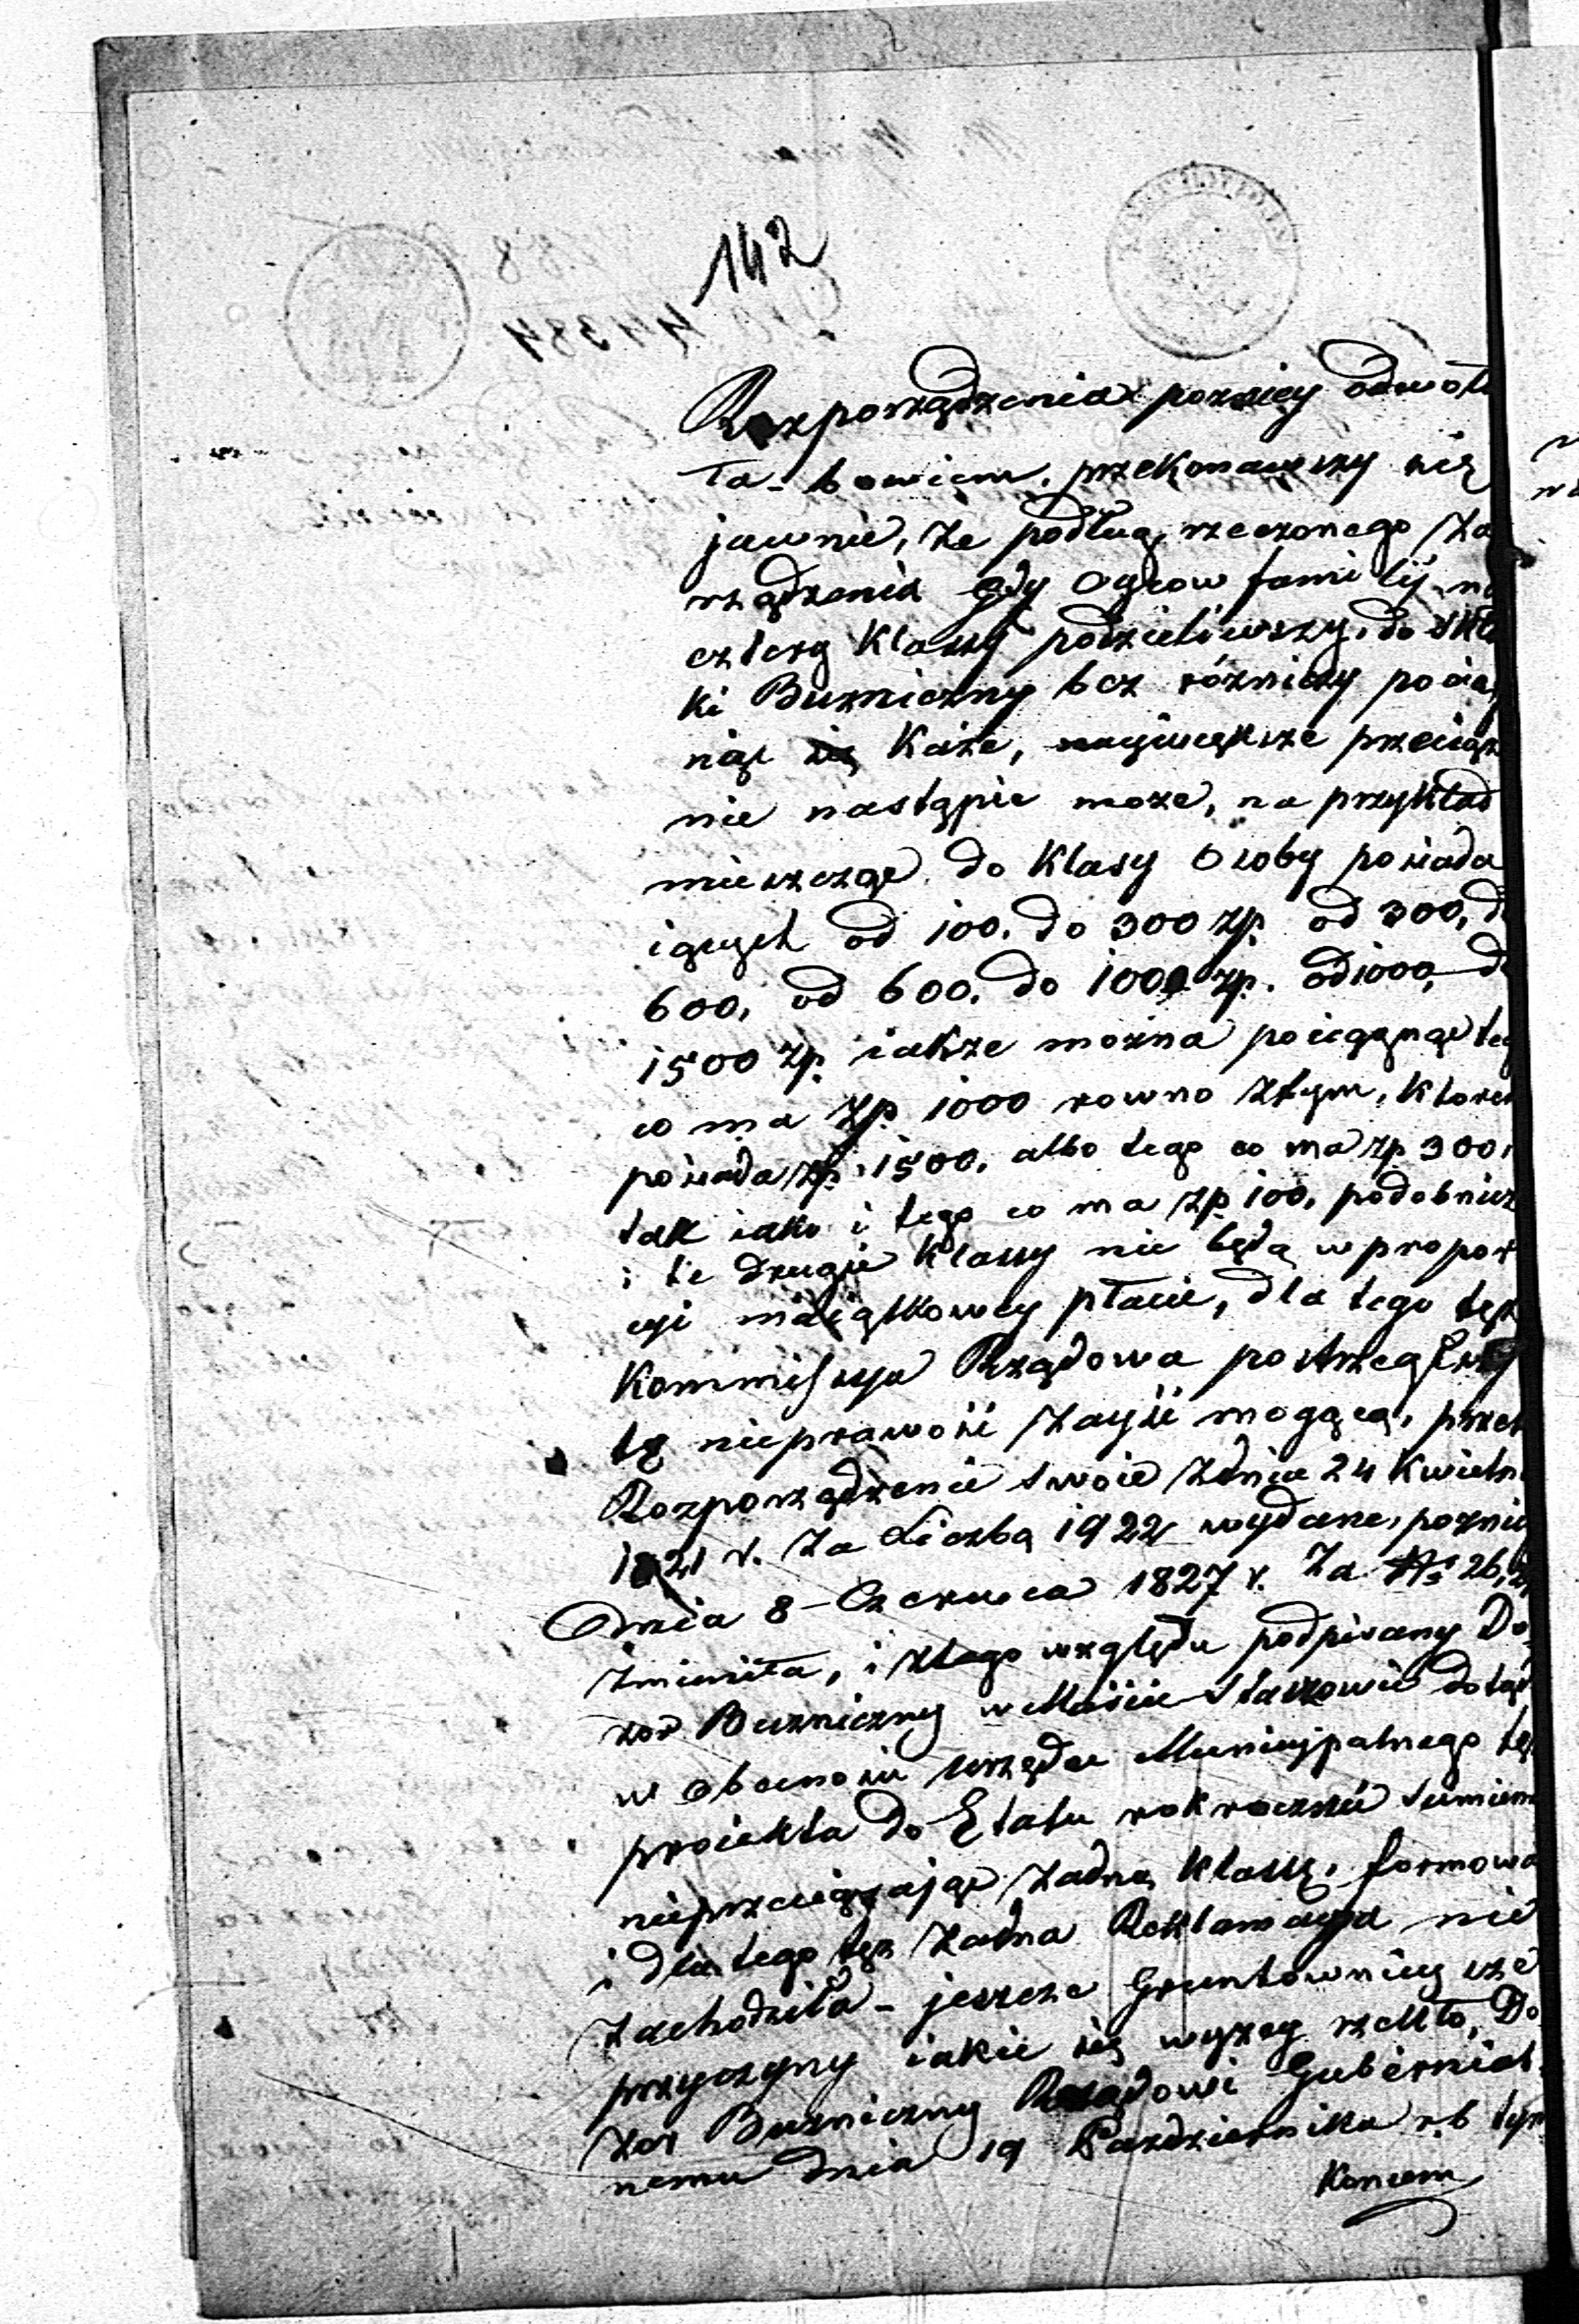 142
Rozporządzenia pozniey odwoła
ła - bowiem, przekonawszy się
jawnie, że podług rzeczonego za
rządzenia gdy Ogrow familij na
cztery Klassy podzieliwszy, do skła
ki Buzniczny bez różniczy pocią
nąc się każe, naywiększe przeciąż
nie nastąpić moze, na przykład
mieszcząc do Klasy Osoby posiada
iących od 100. do 300 zp. od 300, do
600, od 600. do 1000 zp. od 1000, do
1500 zp. iakże można pociągnąc teg
co ma zp. 1000 rowno ztym, ktoren
posiada zp. 1500. albo tego co ma zp 300,
tak iako i tego co ma zp 100, podobniez
i te drugie Klassy nie będą w propor
cyi maiątkowey płacić, dla tego też
Kommissyja Rządowa postrzegłszy
tę nieprawość zayść mogącą, przez
Rozporządzenie swoie zdnia 24 Kwietn
1821 r. za Liczbą 1922 wydane, poznie
Dnia 8 - Czerwca 1827 r. Za № 26,2
zmieniła, i ztego względu podpisany Do
zor Buzniczny w Mieście Staszowie dotąd
w obecności urzędu Municypalnego też
proiekta do Etatu rok rocznie sumienn
nieprzeciążając żadną klassę, formowa
i dla tego też żadna Reklamacyja nie
zachodziła - jeszcze Gruntowniey sze
przyczyny iakie się wyzey rzekło, Do
zor Buzniczny Rządowi Gubernial
nemu dnia 19 Pazdziernika r.b tym
Koncem